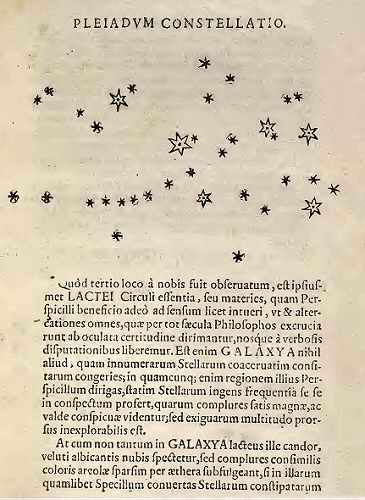 PLEIADVM CONSTELLATIO.
Quòd tertio loco à nobis fuit obseruatum, est ipsius-
met LACTEI Circuli essentia, seu materies, quam Per-
spicilli beneficio adeò ad sensum licet intueri, vt & alter-
cationes omnes, quæ per tot sæcula Philosophos excrucia
runt ab oculata certitudine dirimantur, nosque à verbosis
disputationibus liberemur. Est enim GALAXYA nihil
aliud, quam innumerarum Stellarum coaceruatim consi-
tarum congeries; in quamcunq; enim regionem illius Per-
spicillum dirigas, statim Stellarum ingens frequentia se se
in conspectum profert, quarum complures satis magnæ, ac
valde conspicuæ videntur; sed exiguarum multitudo pror-
sus inexplorabilis est.
At cum non tantum in GALAXYA lacteus ille candor,
veluti albicantis nubis spectetur, sed complures consimilis
coloris areolæ sparsim per æthera subfulgeant, si in illarum
quamlibet Specillum conuertas Stellarum constipatarum